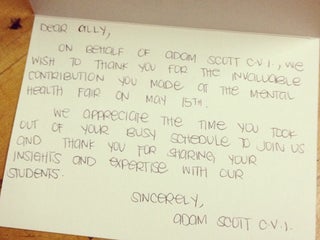 DEAR ALLY,
ON BEHALF OF ADAM SCOTT C.V.I., WE
WISH TO THANK YOU FOR THE INVALUABLE
CONTRIBUTION YOU MADE AT THE MENTAL
HEALTH FAIR ON MAY 15TH.
WE APPRECIATE THE TIME YOU TOOK
OUT OF YOUR BUSY SCHEDULE TO JOIN US
AND THANK YOU FOR SHARING YOUR
INSIGHTS AND EXPERTISE WITH OUR
STUDENTS.
SINCERELY,
ADAM SCOTT C.V.I.